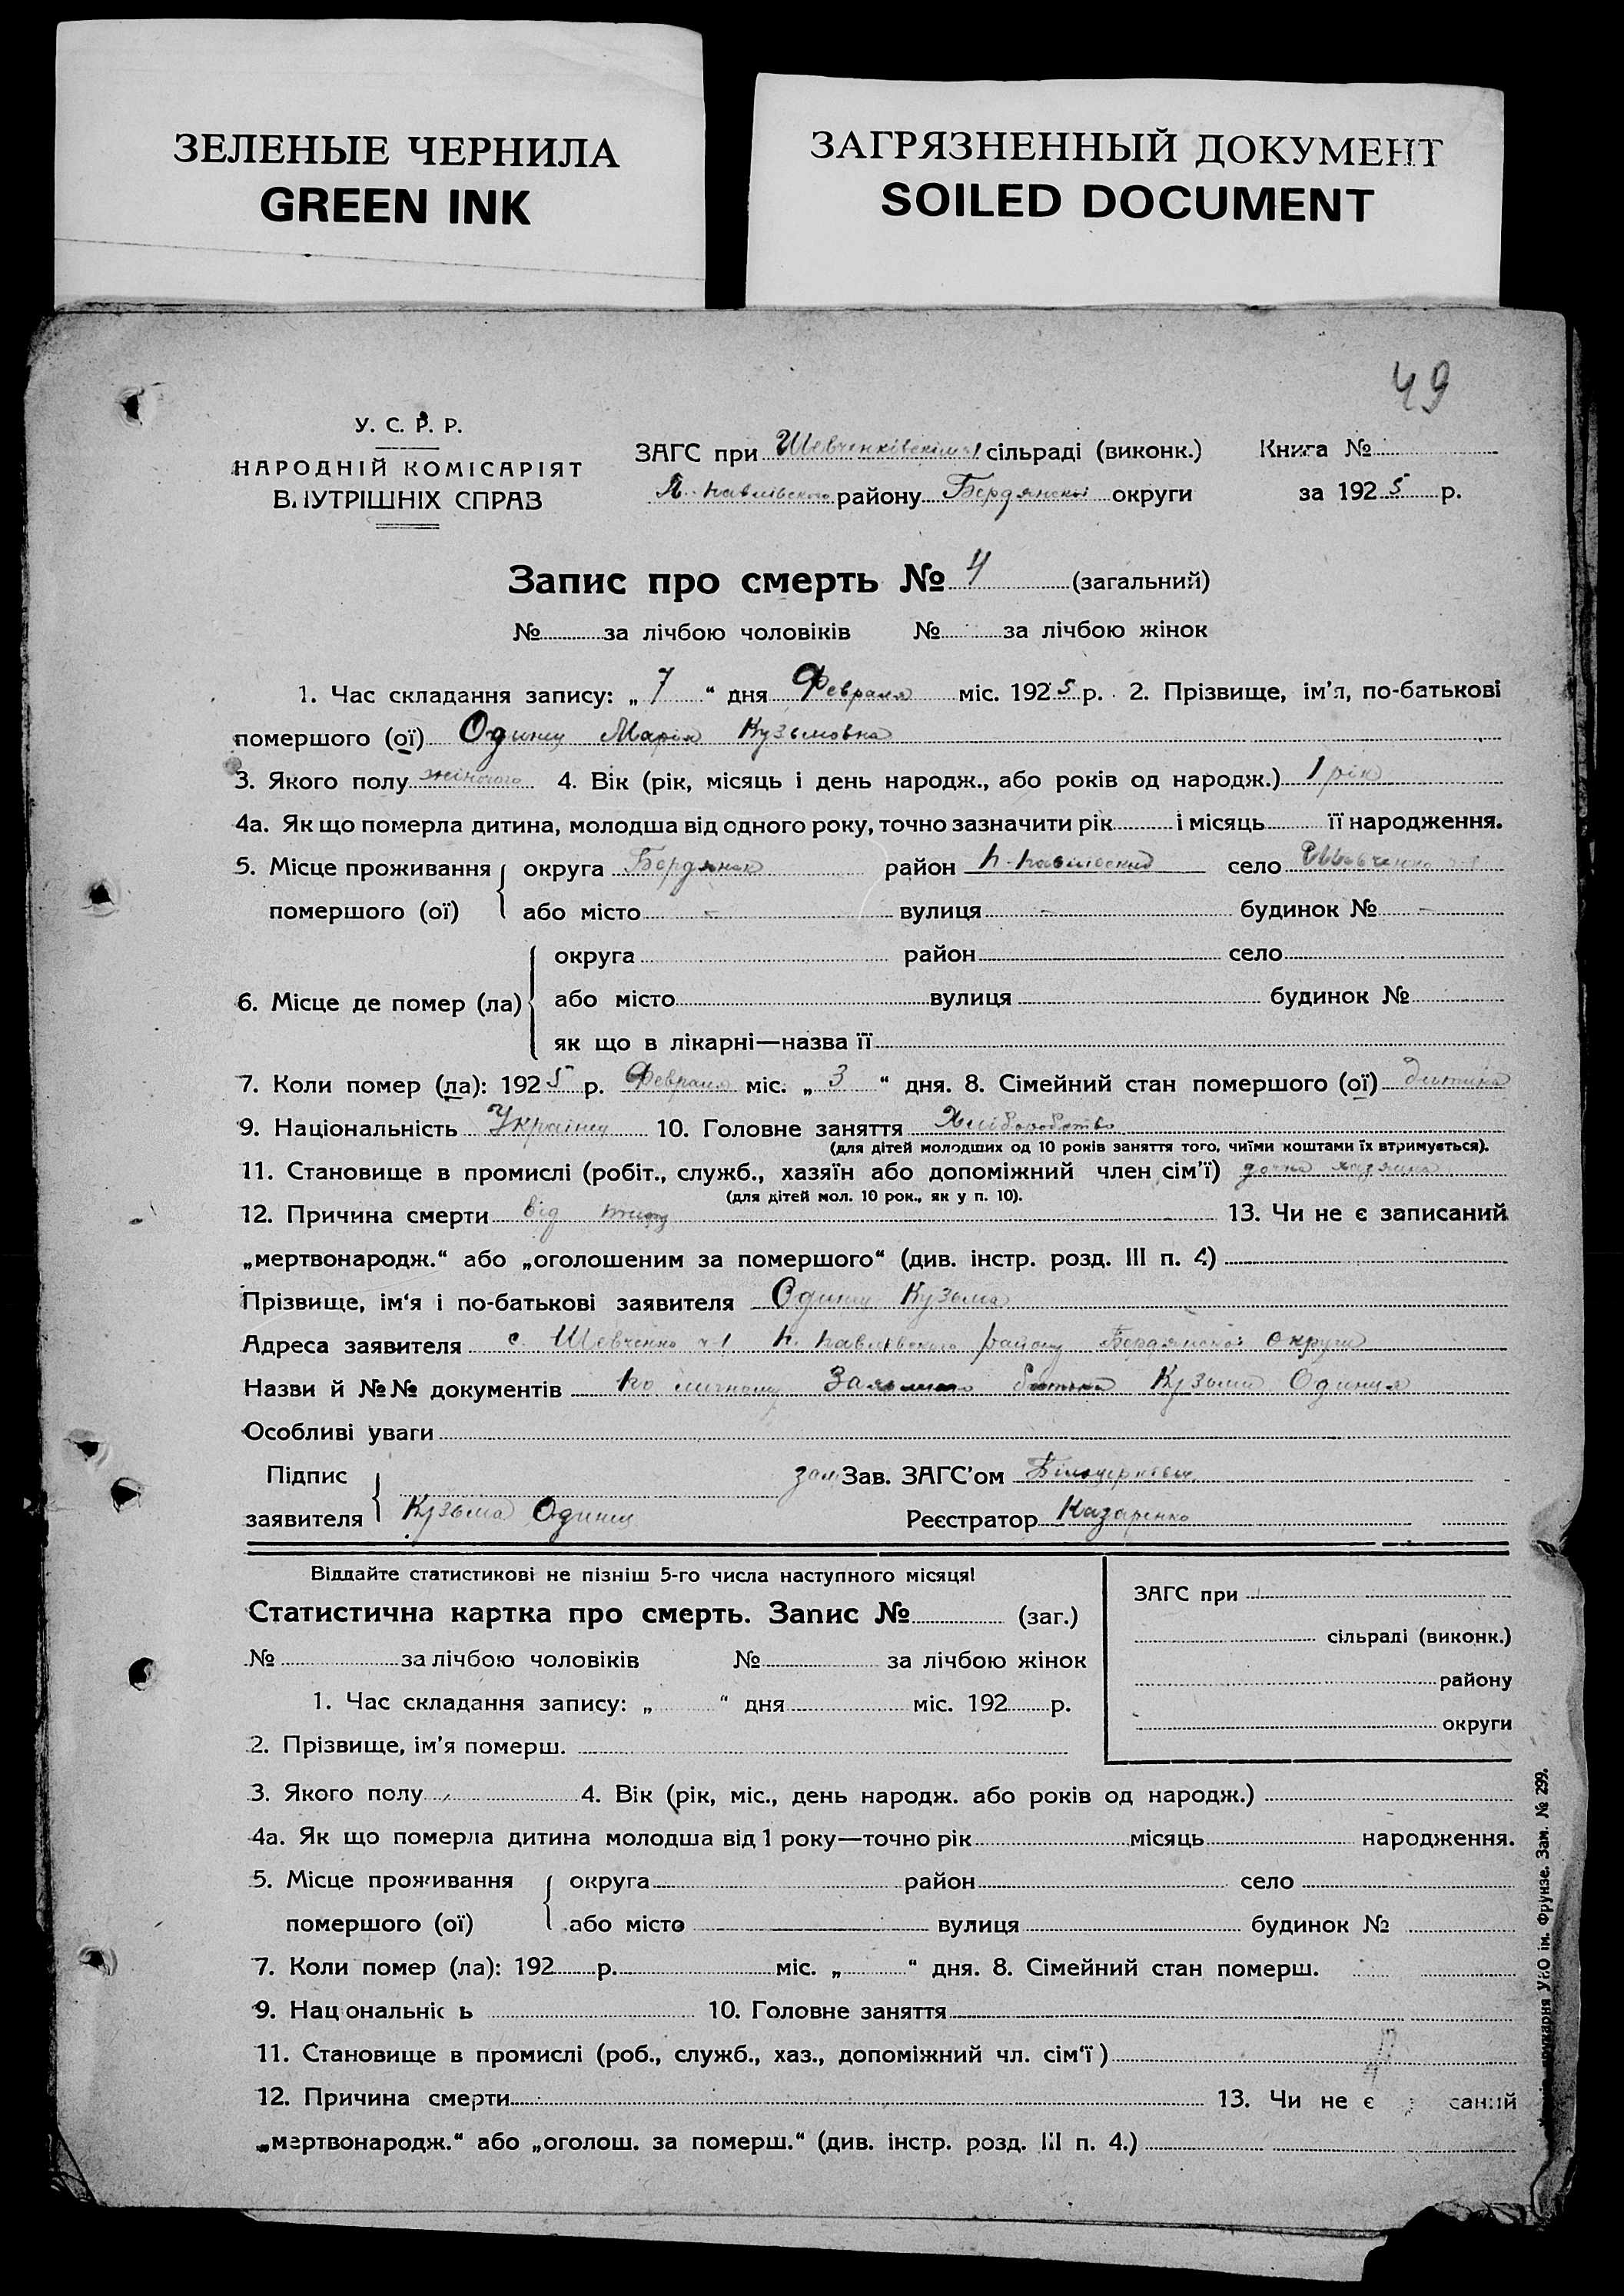 ЗЕЛЕНЫЕ ЧЕРНИЛА
GREEN INK
ЗАГРЯЗНЕННЫЙ ДОКУМЕНТ
SOILED DOCUMENT
49
У. С. Р. Р.
НАРОДНІЙ КОМІСАРІЯТ
ВНУТРІШНІХ СПРАВ
ЗАГС при Шевченківській сільраді (виконк.) Книга №
П. Павлівского району Бердянской округи за 1925 р.
Запис про смерть № 4 (загальний)
№ за лічбою чоловіків № за лічбою жінок
1. Час складання запису: „ 7 “ дня Февраля міс. 1925 р. 2. Прізвище, ім’я, по-батькові
помершого (ої) Одинец Мария Кузьмовна
3. Якого полу жіночого 4. Вік (рік, місяць і день народж., або років од народж.) 1 рік
4а. Як що померла дитина, молодша від одного року, точно зазначити рік і місяць її народження.
5. Місце проживання округа Бердянск район П. Павлівский село Шевченко ч 1
помершого (ої) або місто – вулиця – будинок № –
округа район село
6. Місце де помер (ла) або місто вулиця будинок №
як що в лікарні—назва її
7. Коли помер (ла): 1925 р. Февраля міс. „ 3 “ дня. 8. Сімейний стан помершого (ої) дитина
9. Національність Українц 10. Головне заняття Хліборобство
(для дітей молодших од 10 років заняття того, чиїми коштами їх втримується).
11. Становище в промислі (робіт., служб., хазяїн або допоміжний член сім’ї) дочка хазяина
(для дітей мол. 10 рок., як у п. 10).
12. Причина смерти від тифу 13. Чи не є записаний
„мертвонародж.“ або „оголошеним за помершого“ (див. інстр. розд. III п. 4)
Прізвище, ім‘я і по-батькові заявителя Одинец Кузьма
Адреса заявителя с. Шевченко ч 1 П. Павлівского району Бердянской округи
Назви й №№ документів По личному батька Кузьми Одинця
Особливі уваги
Підпис зам Зав. ЗАГС’ом
заявителя Кузьма Одинец Реєстратор Назаренко
Віддайте статистикові не пізніш 5-го числа наступного місяця!
Статистична картка про смерть. Запис № (заг.)
ЗАГС при
сільраді (виконк.)
№ за лічбою чоловіків № за лічбою жінок
району
1. Час складання запису: „ “ дня міс. 192 р.
округи
2. Прізвище, ім’я померш.
3. Якого полу 4. Вік (рік, міс., день народж. або років од народж.)
4а. Як що померла дитина молодша від 1 року—точно рік місяць народження.
5. Місце проживання округа район село
помершого (ої) або місто вулиця будинок №
7. Коли помер (ла): 192 р. міс. „ “ дня. 8. Сімейний стан померш.
9. Нац ональніс ь 10. Головне заняття
11. Становище в промислі (роб., служб., хаз., допоміжний чл. сім‘ї)
12. Причина смерти 13. Чи не є саний
„мертвонародж.“ або „оголош. за померш.“ (див. інстр. розд. III п. 4.)
ім. Фрунзе. Зам. № 299.